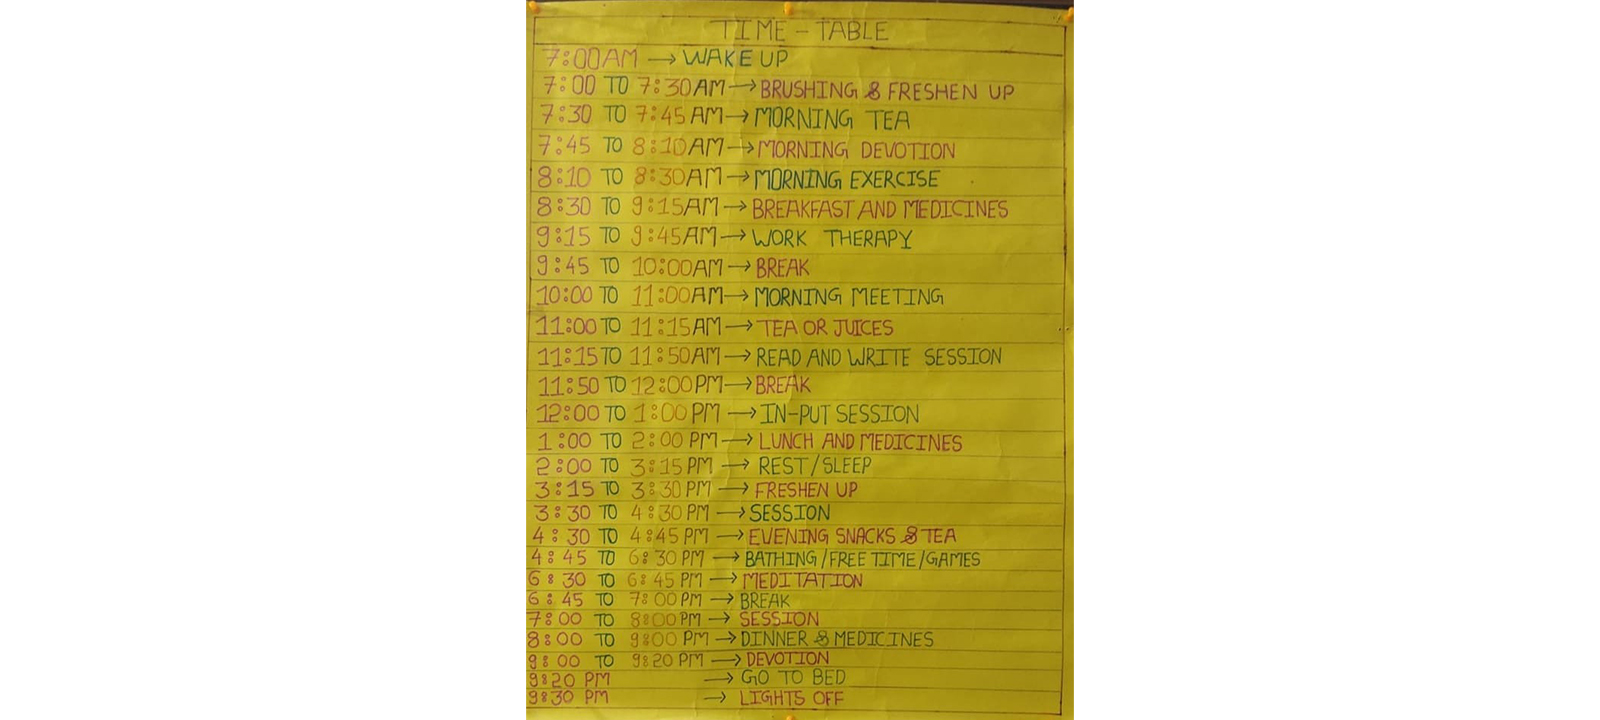 TIME - TABLE
7:00AM → WAKE UP
7:00 TO 7:30AM → BRUSHING & FRESHEN UP
7:30 TO 7:45 AM → MORNING TEA
7:45 TO 8:10AM → MORNING DEVOTION
8:10 TO 8:30AM → MORNING EXERCISE
8:30 TO 9:15AM → BREAKFAST AND MEDICINES
9:15 TO 9:45AM → WORK THERAPY
9:45 TO 10:00AM → BREAK
10:00 TO 11:00AM → MORNING MEETING
11:00 TO 11:15AM → TEA OR JUICES
11:15 TO 11:50AM → READ AND WRITE SESSION
11:50 TO 12:00PM → BREAK
12:00 TO 1:00 PM → IN-PUT SESSION
1:00 TO 2:00 PM → LUNCH AND MEDICINES
2:00 TO 3:15 PM → REST/SLEEP
3:15 TO 3:30 PM → FRESHEN UP
3:30 TO 4:30 PM → SESSION
4:30 TO 4:45 PM → EVENING SNACKS & TEA
4:45 TO 6:30 PM → BATHING/FREE TIME/GAMES
6:30 TO 6:45 PM → MEDITATION
6:45 TO 7:00 PM → BREAK
7:00 TO 8:00PM → SESSION
8:00 TO 9:00 PM → DINNER & MEDICINES
9:00 TO 9:20 PM → DEVOTION
9:20 PM → GO TO BED
9:30 PM → LIGHTS OFF